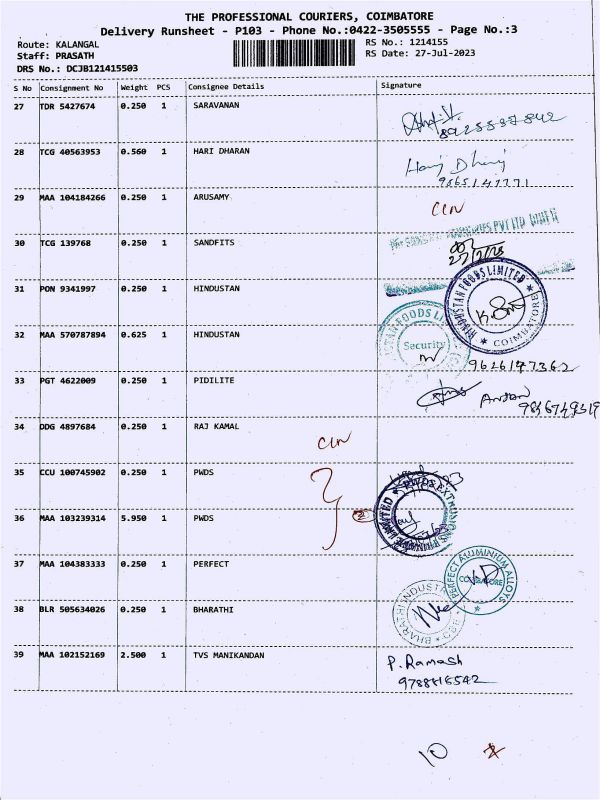 THE PROFESSIONAL COURIERS, COIMBATORE
Delivery Runsheet - P103 - Phone No.:0422-3505555 - Page No.:3
Route: KALANGAL
RS No.: 1214155
Staff: PRASATH
RS Date: 27-Jul-2023
DRS No.: DCJB121415503
S No Consignment No Weight PCS Consignee Details Signature
27 TDR 5427674 0.250 1 SARAVANAN
8925597842
28 TCG 40563953 0.560 1 HARI DHARAN
Hari Dharj
9865147771
29 MAA 104184266 0.250 1 ARUSAMY CIN
PVT LTD UNIT II
30 TCG 139768 0.250 1 SANDFITS
27/7/23
31 PON 9341997 0.250 1 HINDUSTAN
HINDUSTAN FOODS LIMITED
COIMBATORE
32 MAA 570787894 0.625 1 HINDUSTAN
Security
9626147362
33 PGT 4622009 0.250 1 PIDILITE
34 DDG 4897684 0.250 1 RAJ KAMAL
CIN
35 CCU 100745902 0.250 1 PWDS
36 MAA 103239314 5.950 1 PWDS
2
37 MAA 104383333 0.250 1 PERFECT
PERFECT ALUMINIUM ALLOYS
COIMBATORE
38 BLR 505634026 0.250 1 BHARATHI
BHARATHI INDUSTR
CBE
39 MAA 102152169 2.500 1 TVS MANIKANDAN
P. Ramash
9788816542
10